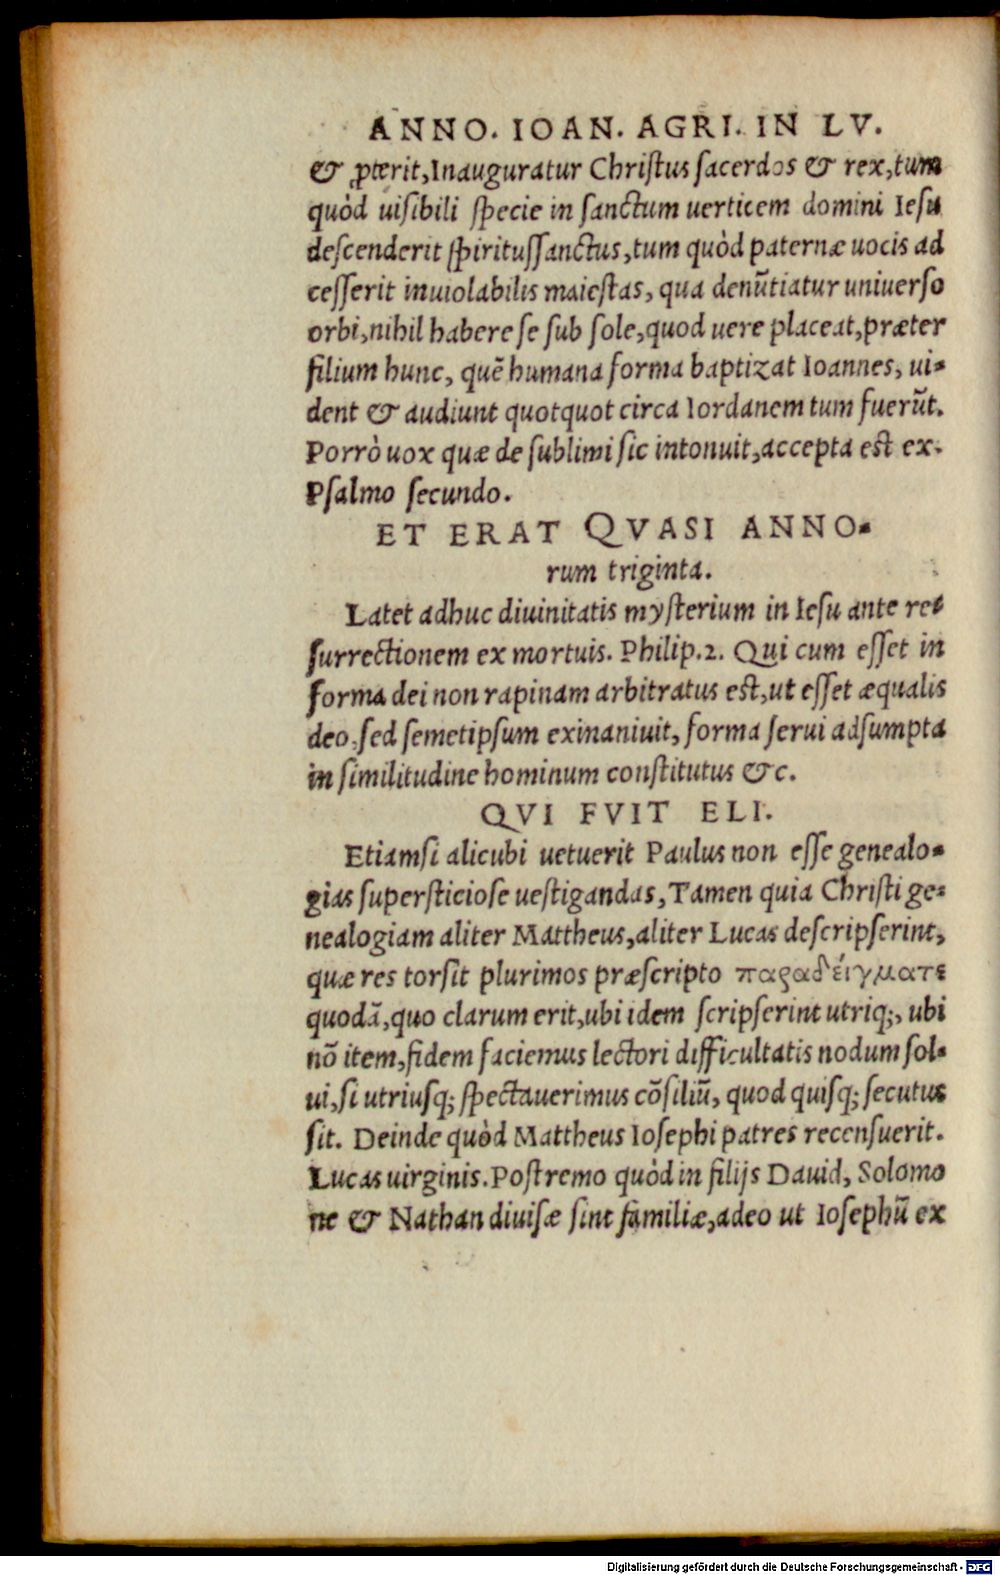 ANNO. IOAN. AGRI. IN LV.
& ꝓterit, Inauguratur Christus sacerdos & rex, tum
quòd uisibili specie in sanctum uerticem domini Iesu
descenderit spiritussanctus, tum quòd paternæ uocis ad
cesserit inuiolabilis maiestas, qua denũtiatur uniuerso
orbi, nihil habere se sub sole, quod uere placeat, præter
filium hunc, quẽ humana forma baptizat Ioannes, ui-
dent & audiunt quotquot circa Iordanem tum fuerũt.
Porrò uox quæ de sublimi sic intonuit, accepta est ex.
Psalmo secundo.
ET ERAT QVASI ANNO-
rum triginta.
Latet adhuc diuinitatis mysterium in Iesu ante re-
surrectionem ex mortuis. Philip. 2. Qui cum esset in
forma dei non rapinam arbitratus est, ut esset æqualis
deo, sed semetipsum exinaniuit, forma serui adsumpta
in similitudine hominum constitutus &c.
QVI FVIT ELI.
Etiamsi alicubi uetuerit Paulus non esse genealo-
gias supersticiose uestigandas, Tamen quia Christi ge-
nealogiam aliter Mattheus, aliter Lucas descripserint,
quæ res torsit plurimos præscripto παραδείγματε
quodã, quo clarum erit, ubi idem scripserint utriq;, ubi
nõ item, fidem faciemus lectori difficultatis nodum sol-
ui, si utriusq; spectauerimus cõsiliũ, quod quisq; secutus
sit. Deinde quòd Mattheus Iosephi patres recensuerit.
Lucas uirginis. Postremo quòd in filijs Dauid, Solomo
ne & Nathan diuisæ sint familiæ, adeo ut Iosephũ ex
Digitalisierung gefördert durch die Deutsche Forschungsgemeinschaft - DFG